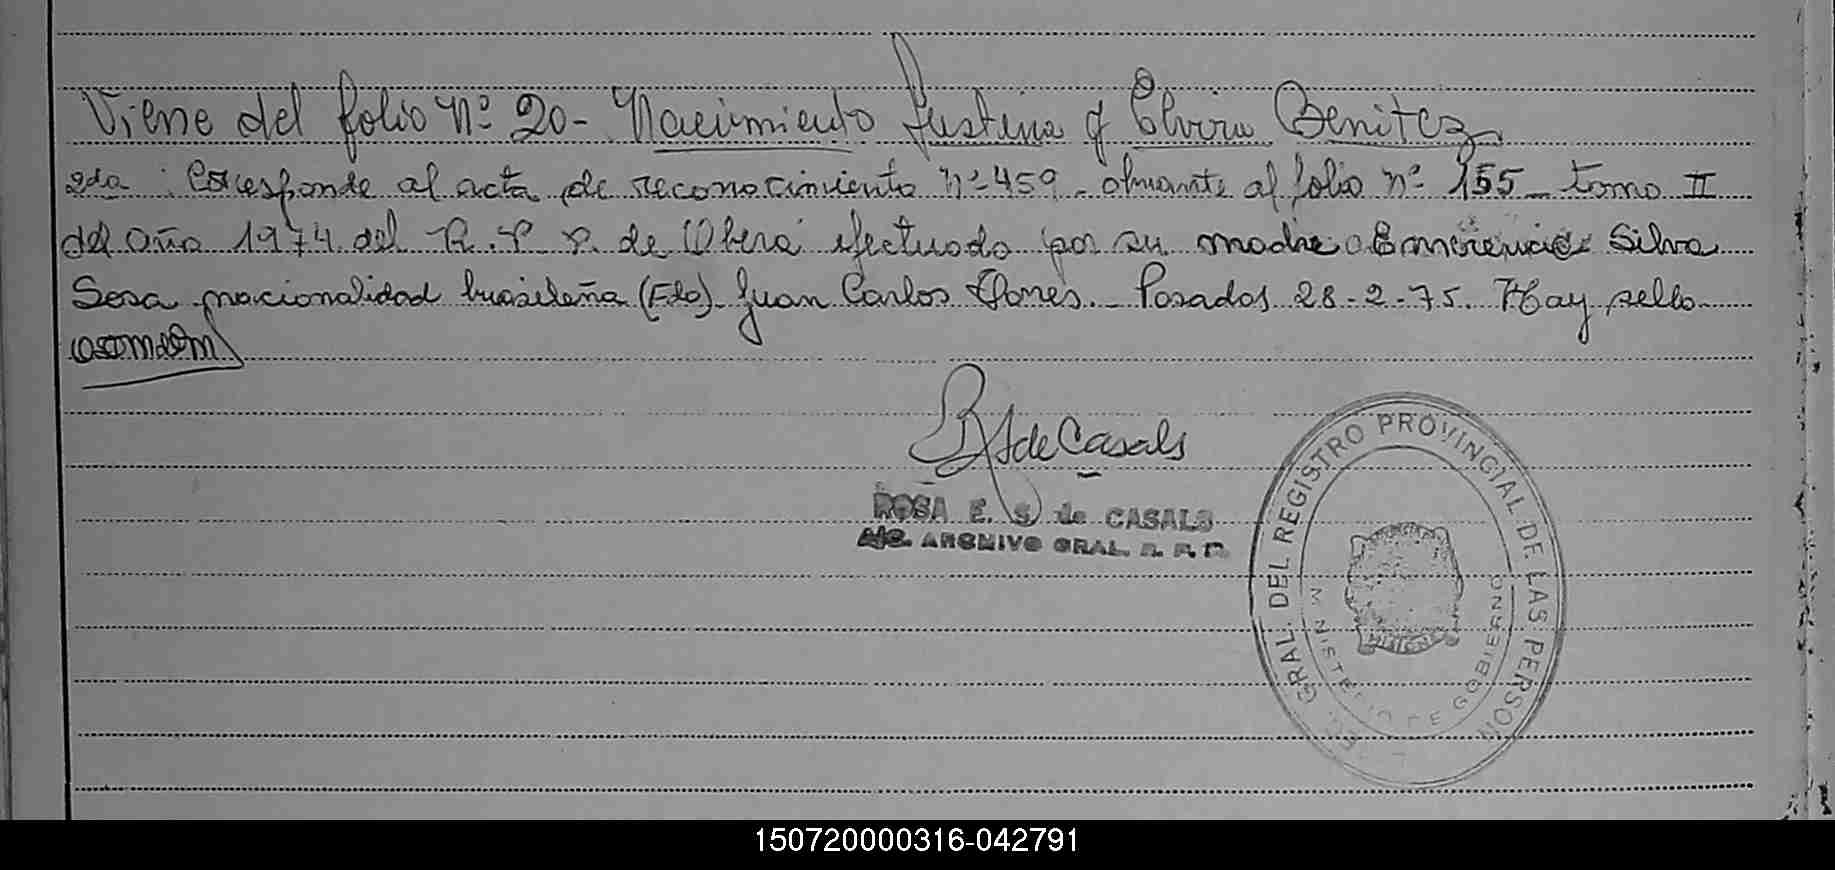 Viene del folio Nº 20 - Nacimiento Justina y Elvira Benitez
2da : Corresponde al acta de reconocimiento nº 459 - obrante al folio nº 155 - tomo II
del año 1974 del R. P. P. de Obera efectuado por su madre Emerencia Silva
Sosa nacionalidad brasileña (Fdo) Juan Carlos Flores. - Posadas 28-2-75. Hay sello
R S de Casals
ROSA E. S. de CASALS
A/C. ARCHIVO GRAL. R. P. P.
GRAL. DEL REGISTRO PROVINCIAL DE LAS PERSON
MINISTERIO DE GOBIERNO
150720000316-042791